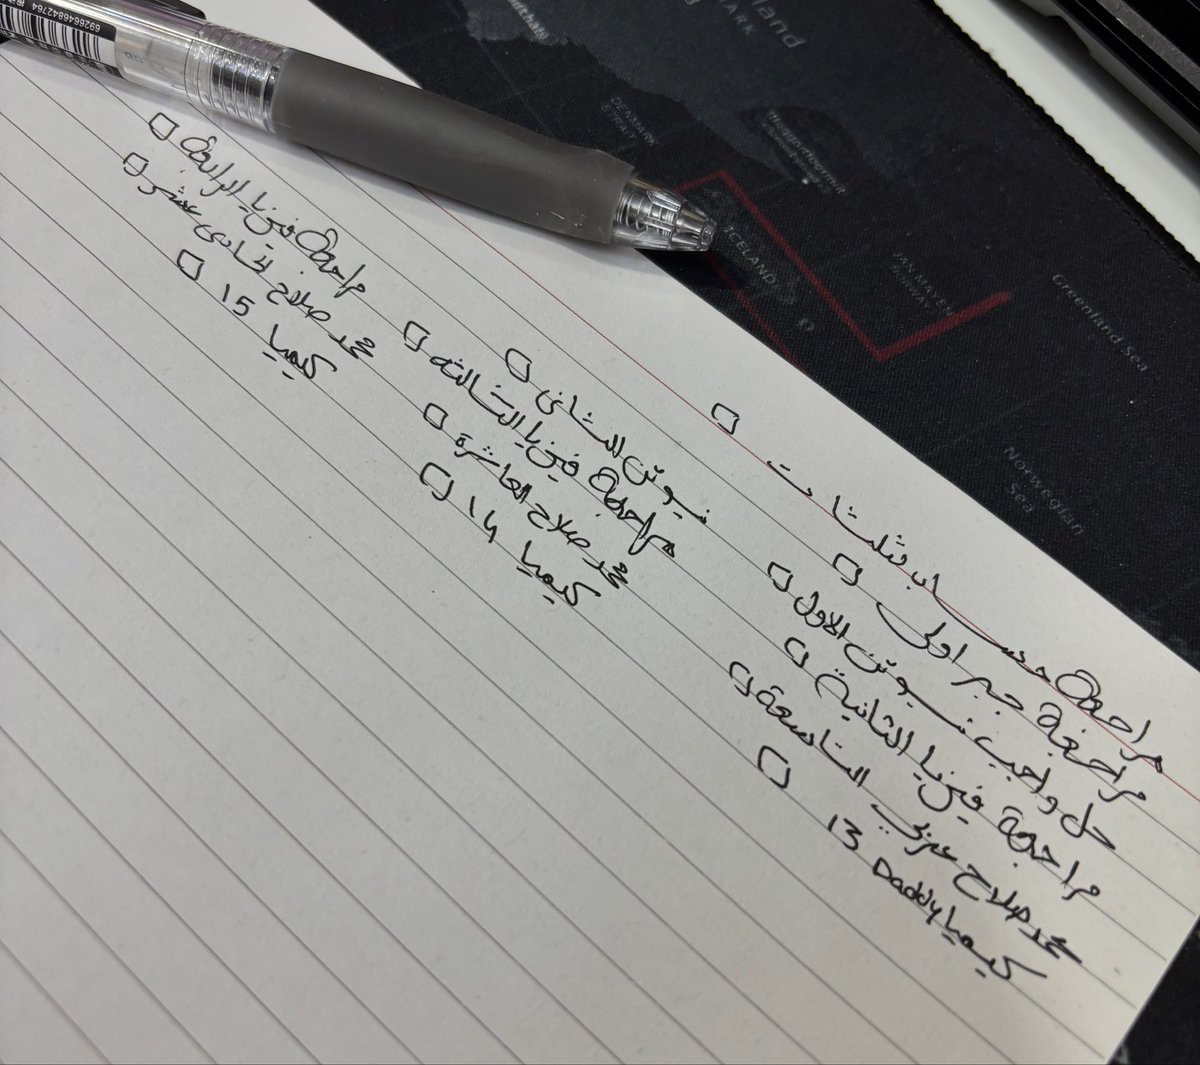 مراجعة حساب مثلثات
مراجعة جبر اولى
حل واجب نيوتن الاول
مراجعة فيزيا الثانية
محمد صلاح عربي التاسعة
كيميا Daddy 13
نيوتن الثانى
مراجعة فيزيا الثالثه
محمد صلاح العاشرة
كيميا 14
مراجعة فيزيا الرابعة
محمد صلاح الحادى عشر
كيميا 15
6928646842764
ICELAND
Greenland Sea
Norwegian
Sea
DENMARK
STRAIT